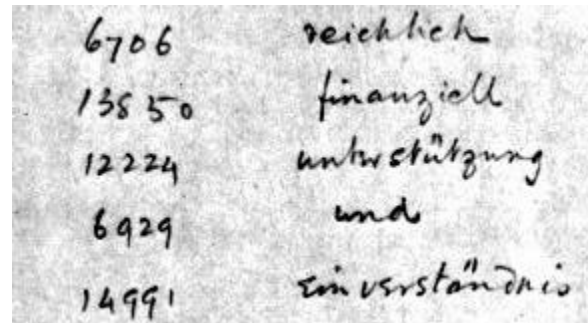 6706 reichlich
13850 finanziell
12224 unterstützung
6929 und
14991 einverständnis